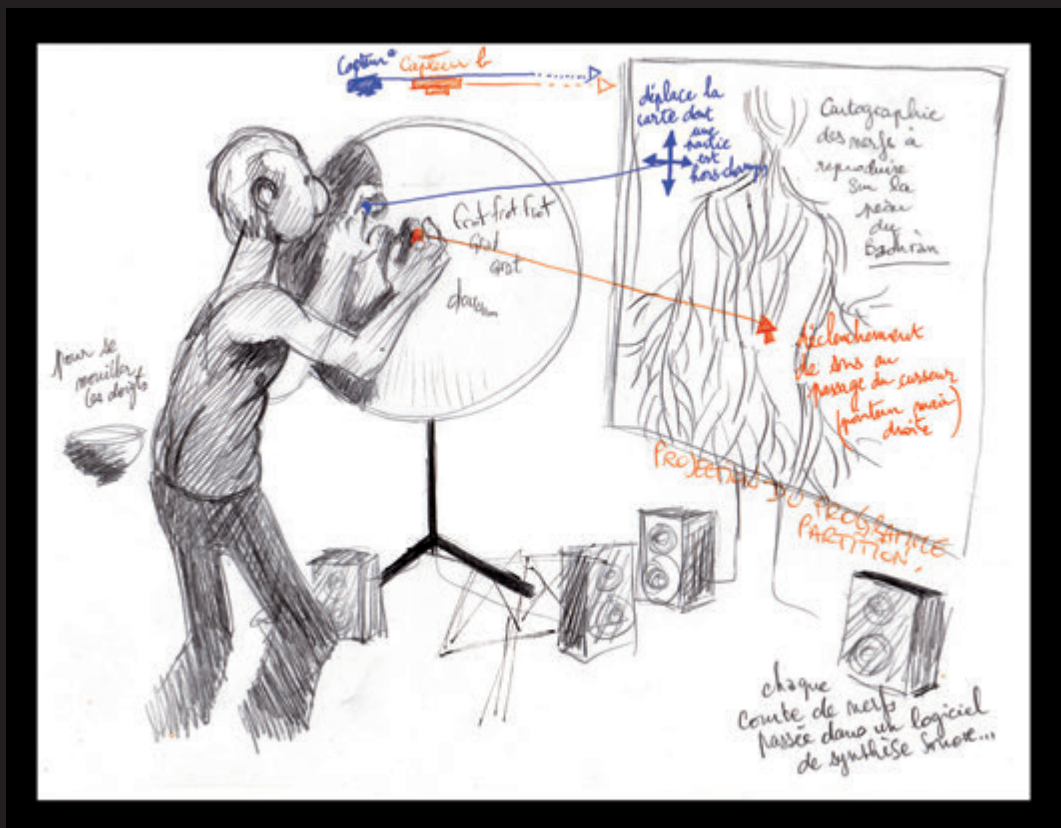 Capteur a Capteur b
déplace la
carte dont
une
partie
est
hors-champ
Cartographie
des nerfs à
reproduire
sur la
peau
du
Bodhràn
frot frot frot
grat
grat
pour se
mouiller
les doigts
déclenchement
de sons au
passage du curseur
(pointeur main
droite)
PROJECTION DU PROGRAMME
PARTITION.
chaque
courbe de nerfs
passée dans un logiciel
de synthèse sonore...